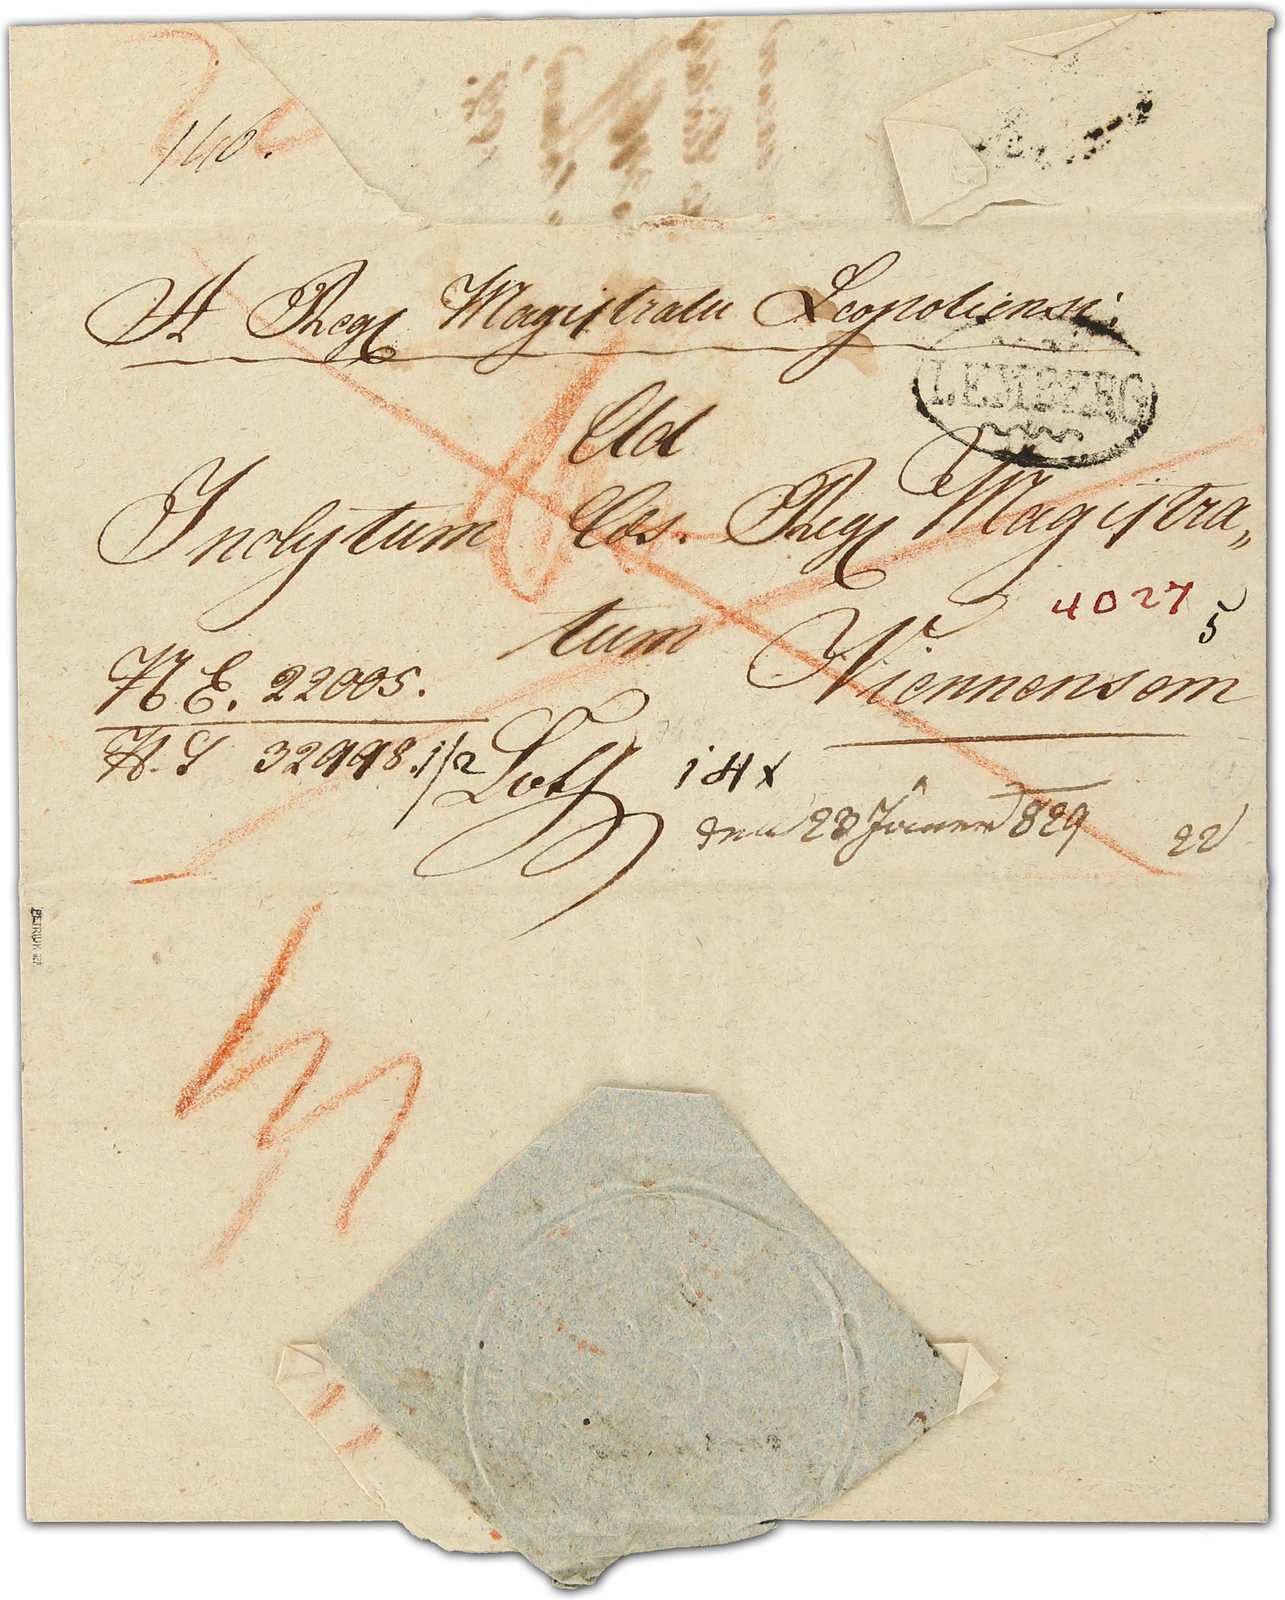 146.
A Regj Magistratu Leopoliensi:
LEMBERG
Ad
Inclytum Cæs. Regj Magistra„
4027
5
tum Viennensem
N. E. 22005.
N. S 32998. 1/2 Loth 14 x
den 23 Jäner 829
22